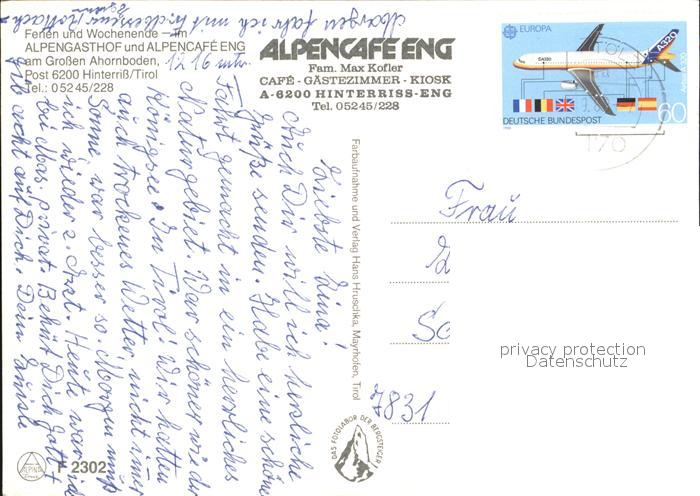 Ferien und Wochenende – im
ALPENGASTHOF und ALPENCAFÉ ENG
am Großen Ahornboden,
Post 6200 Hinterriß/Tirol
Tel.: 0 52 45/228
ALPENCAFE ENG
Fam. Max Kofler
CAFÉ - GÄSTEZIMMER - KIOSK
A-6200 HINTERRISS-ENG
Tel. 0 52 45/228
EUROPA
A320
DEUTSCHE BUNDESPOST
60
Liebste Lina!
Auch Dir will ich herzliche
Grüße senden. Habe eine schöne
Fahrt gemacht in ein herrliches
Naturgebiet. War schöner wie der
Königsee. In Tirol. Wir hatten
auch trockenes Wetter nicht immer
Sonne war besser so. Morgen muß
ich wieder z. Arzt. Heute war ich
bei Max privat. Behüt Dich Gott +
gib acht auf Dich. Deine
Morgen fahr ich mit
Farbaufnahme und Verlag Hans Hruschka, Mayrhofen, Tirol
Frau
7831
privacy protection
Datenschutz
DAS FOTOLABOR DER BERGSTEIGER
ALPINA
F 2302